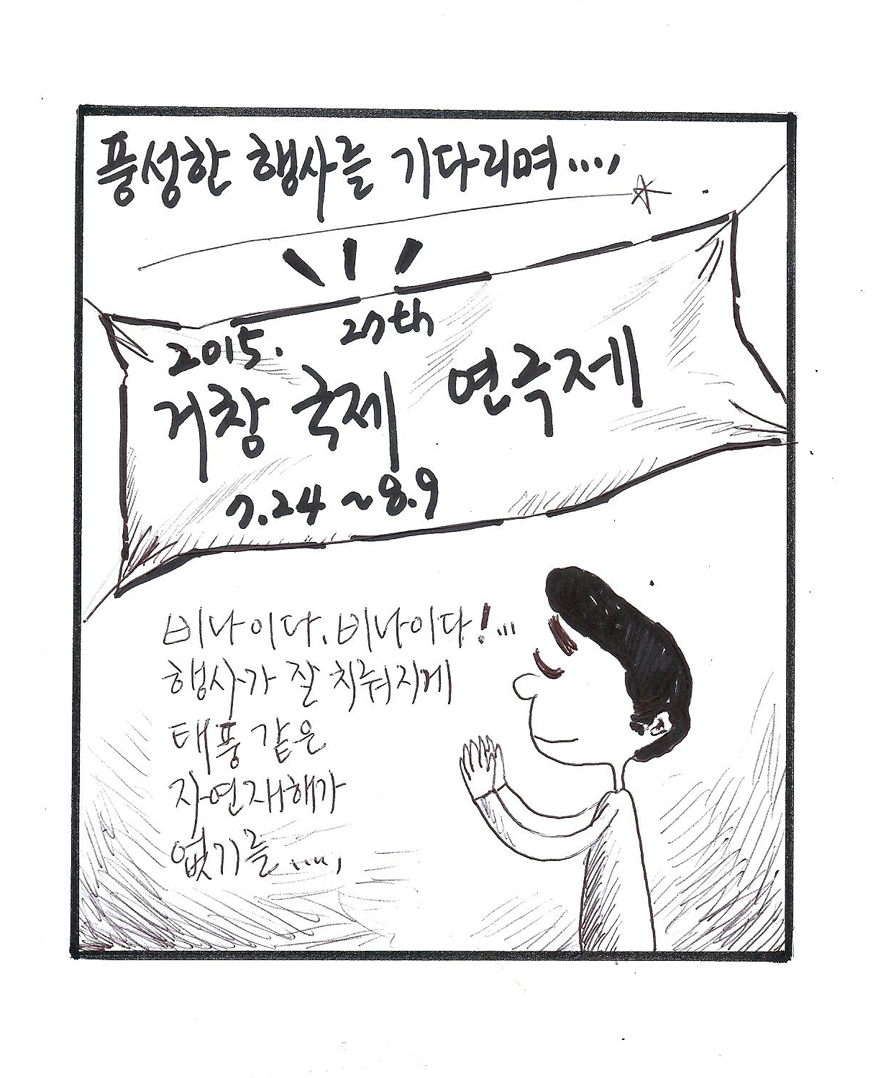 풍성한 행사를 기다리며....,
2015. 27th
거창 국제 연극제
7.24 ~ 8.9
비나이다. 비나이다!...
행사가 잘 치뤄지게
태풍 같은
자연재해가
없기를....,